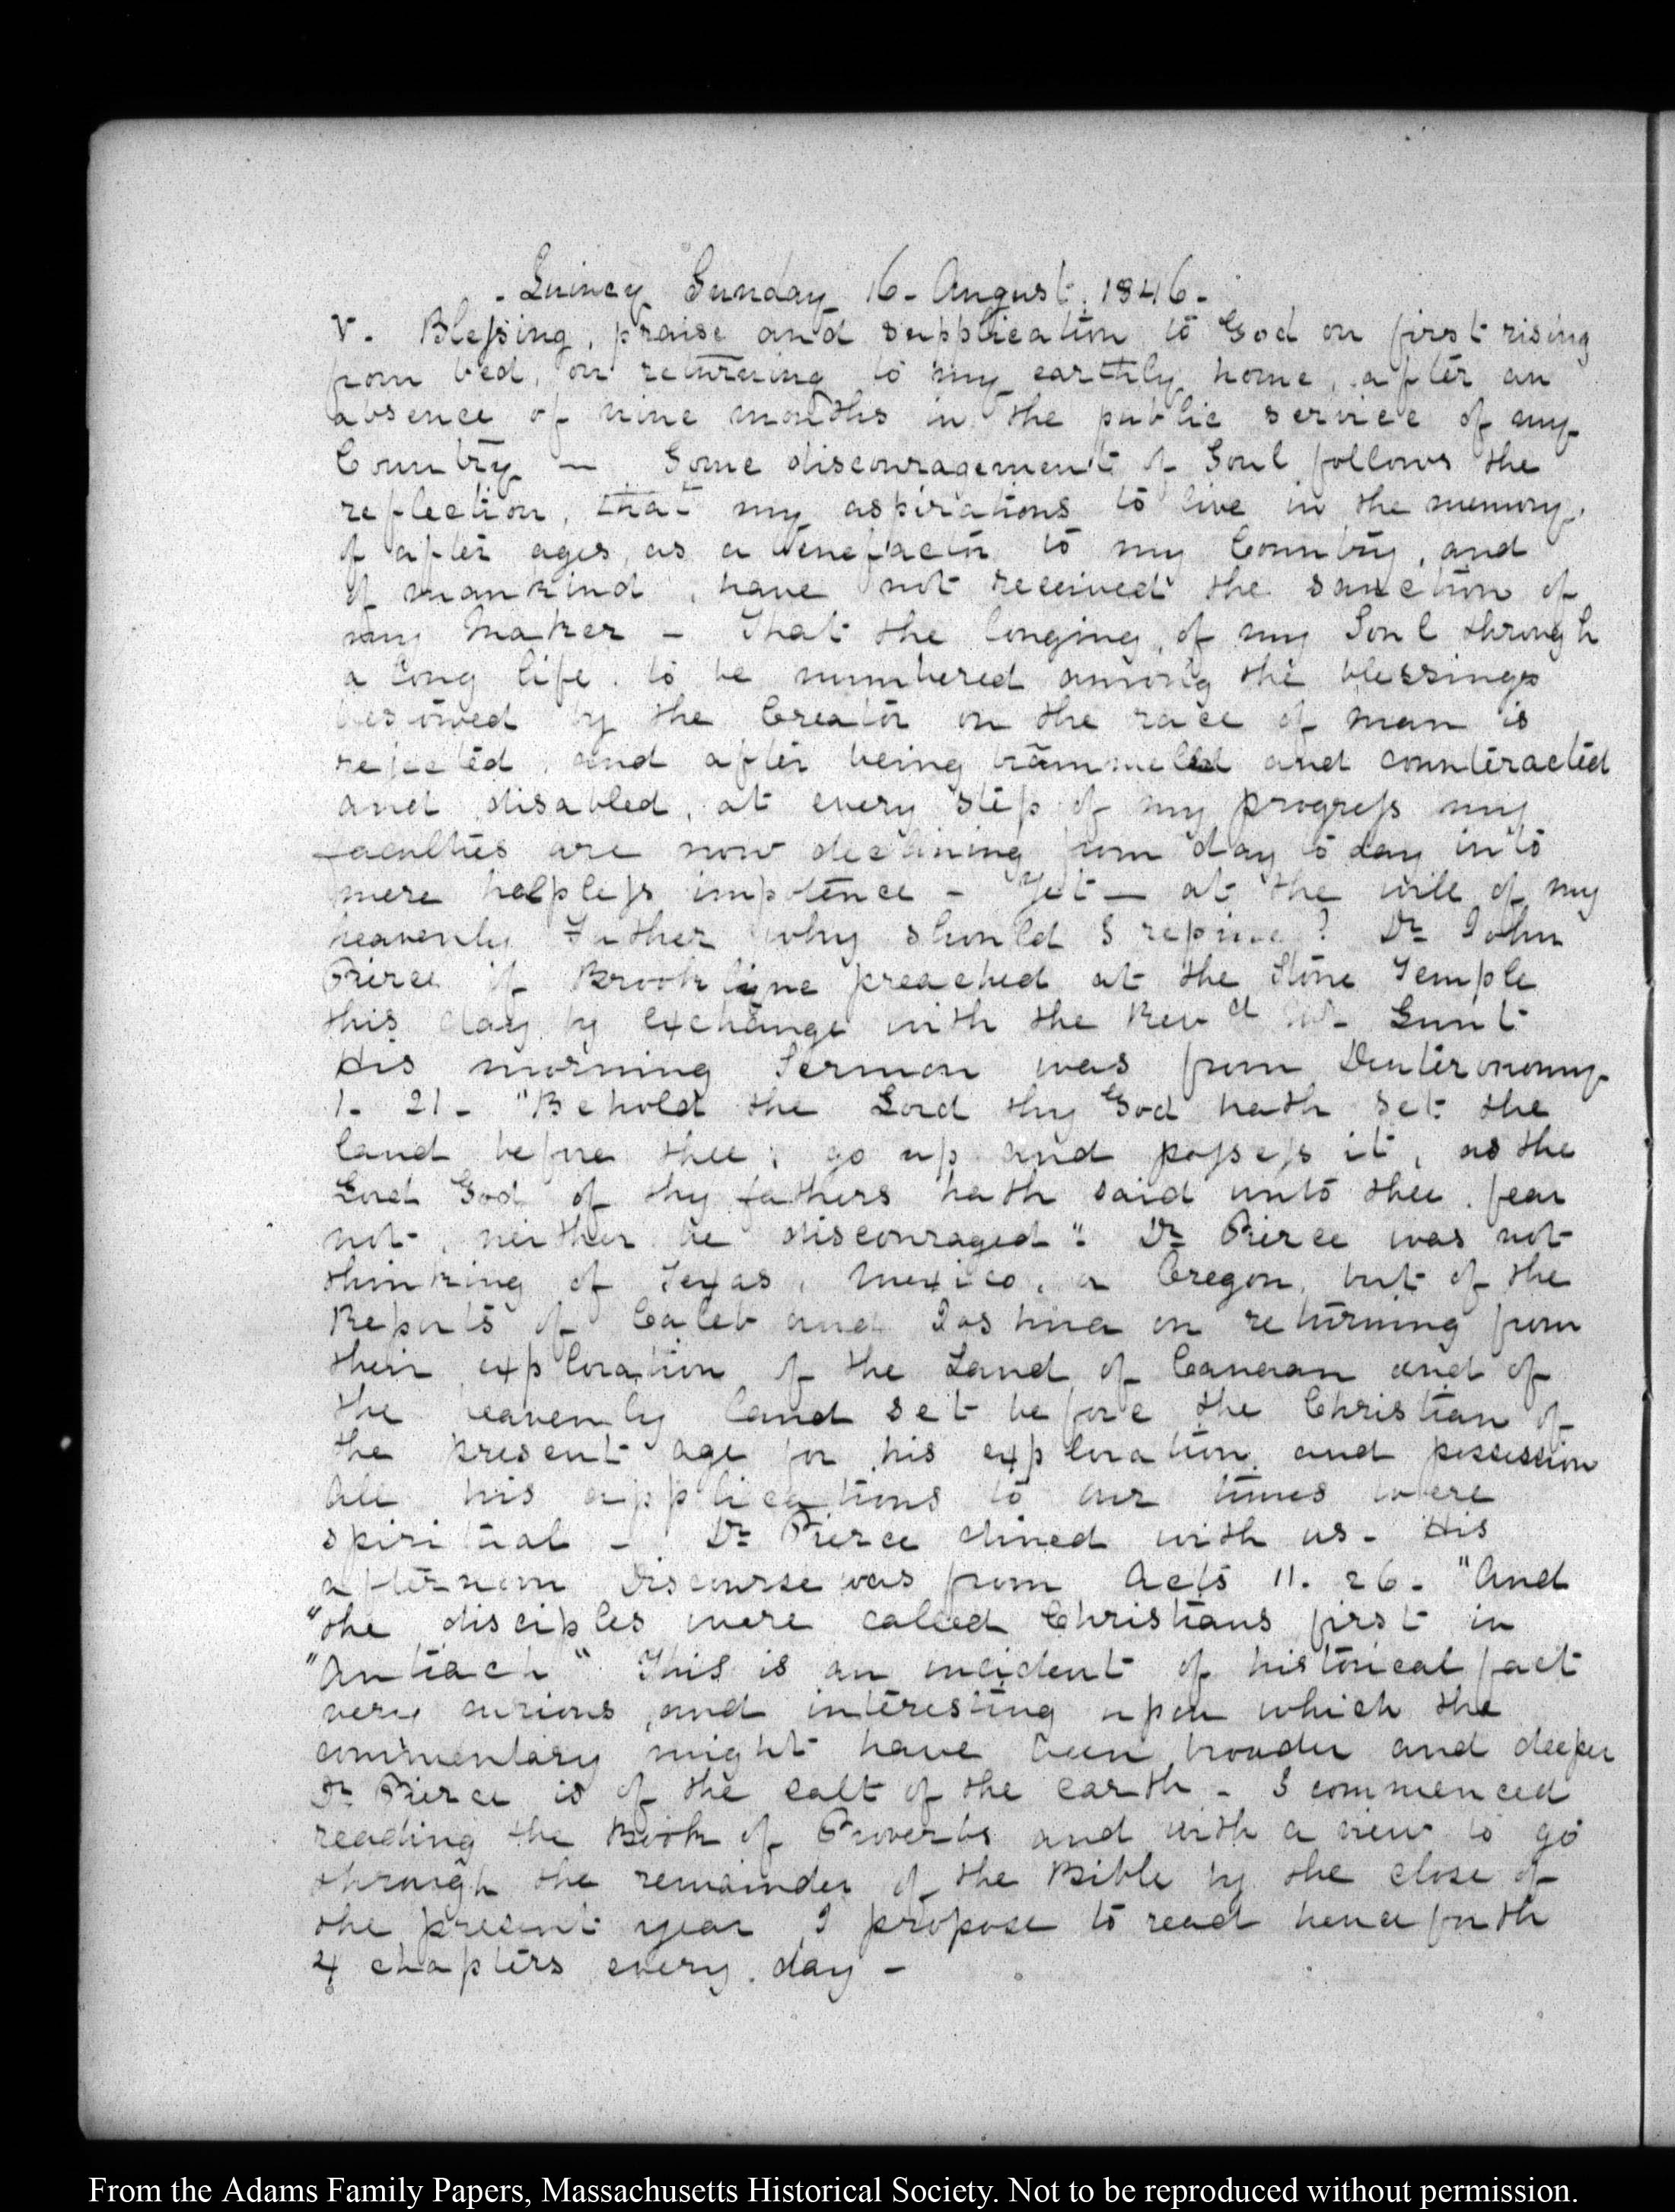 Quincy Sunday 16. August. 1846.
V. Blessing, praise and supplication to God on first rising
from bed, on returning to my earthly home, after an
absence of nine months in the public service of my
Country — Some discouragement of Soul follows the
reflection, that my aspirations to live in the memory
of after ages, as a benefactor to my Country, and
of mankind, have not received the sanction of
my Maker — That the longing, of my Soul through
a long life, to be numbered among the blessings
bestowed by the Creator on the race of man is
rejected, and after being trammeled and counteracted
and disabled, at every step of my progress my
faculties are now declining from day to day into
mere helpless impotence — Yet — at the will of my
heavenly Father why should I repine? Dr John
Pierce of Brookline preached at the Stone Temple
this day by exchange with the Revd Mr Lunt
His morning Sermon was from Deuteronomy
1. 21. "Behold the Lord thy God hath set the
land before thee: go up and possess it, as the
Lord God of thy fathers hath said unto thee, fear
not, neither be discouraged". Dr Pierce was not
thinking of Texas, Mexico, or Oregon, but of the
Reports of Caleb and Joshua on returning from
their exploration of the Land of Canaan and of
the heavenly land set before the Christian of
the present age for his exploration and possession
All his applications to our times were
spiritual — Dr Pierce dined with us — His
afternoon Discourse was from Acts 11. 26. "And
"the disciples were called Christians first in
"Antiach" This is an incident of historical fact
very curious, and interesting upon which the
commentary might have been broader and deeper
Dr Pierce is of the salt of the earth — I commenced
reading the Book of Proverbs and with a view to go
through the remainder of the Bible by the close of
the present year I propose to read henceforth
4 chapters every day —
From the Adams Family Papers, Massachusetts Historical Society. Not to be reproduced without permission.